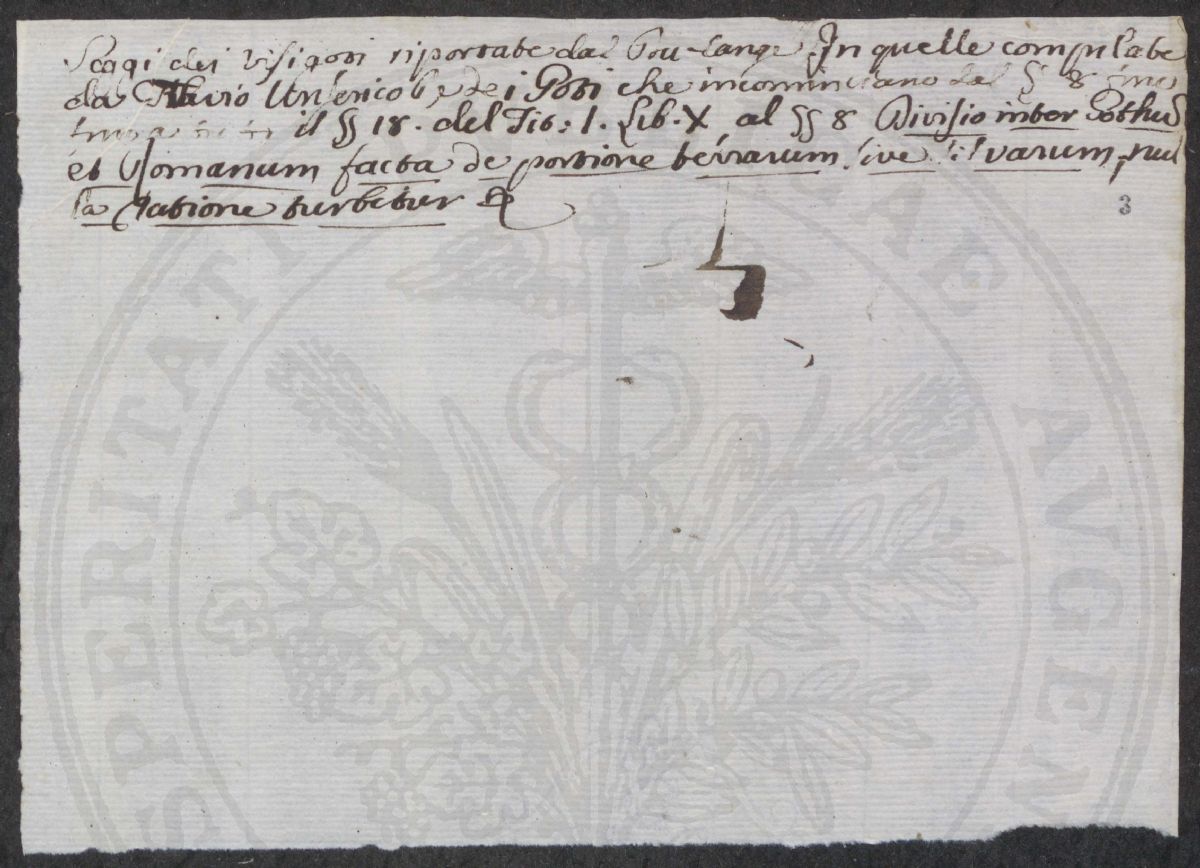 Leggi dei Visigoti riportate dal In quelle compilate
da Flavio Re dei Goti che incominciano dal § 8
il §§ 18. del Tit: 1. Lib. X al §§ 8 Divisio inter Gothum
et Romanum facta de portione terrarum sive silvarum, nul
la ratione turbetur
3
SPERITATI AE AVGEN